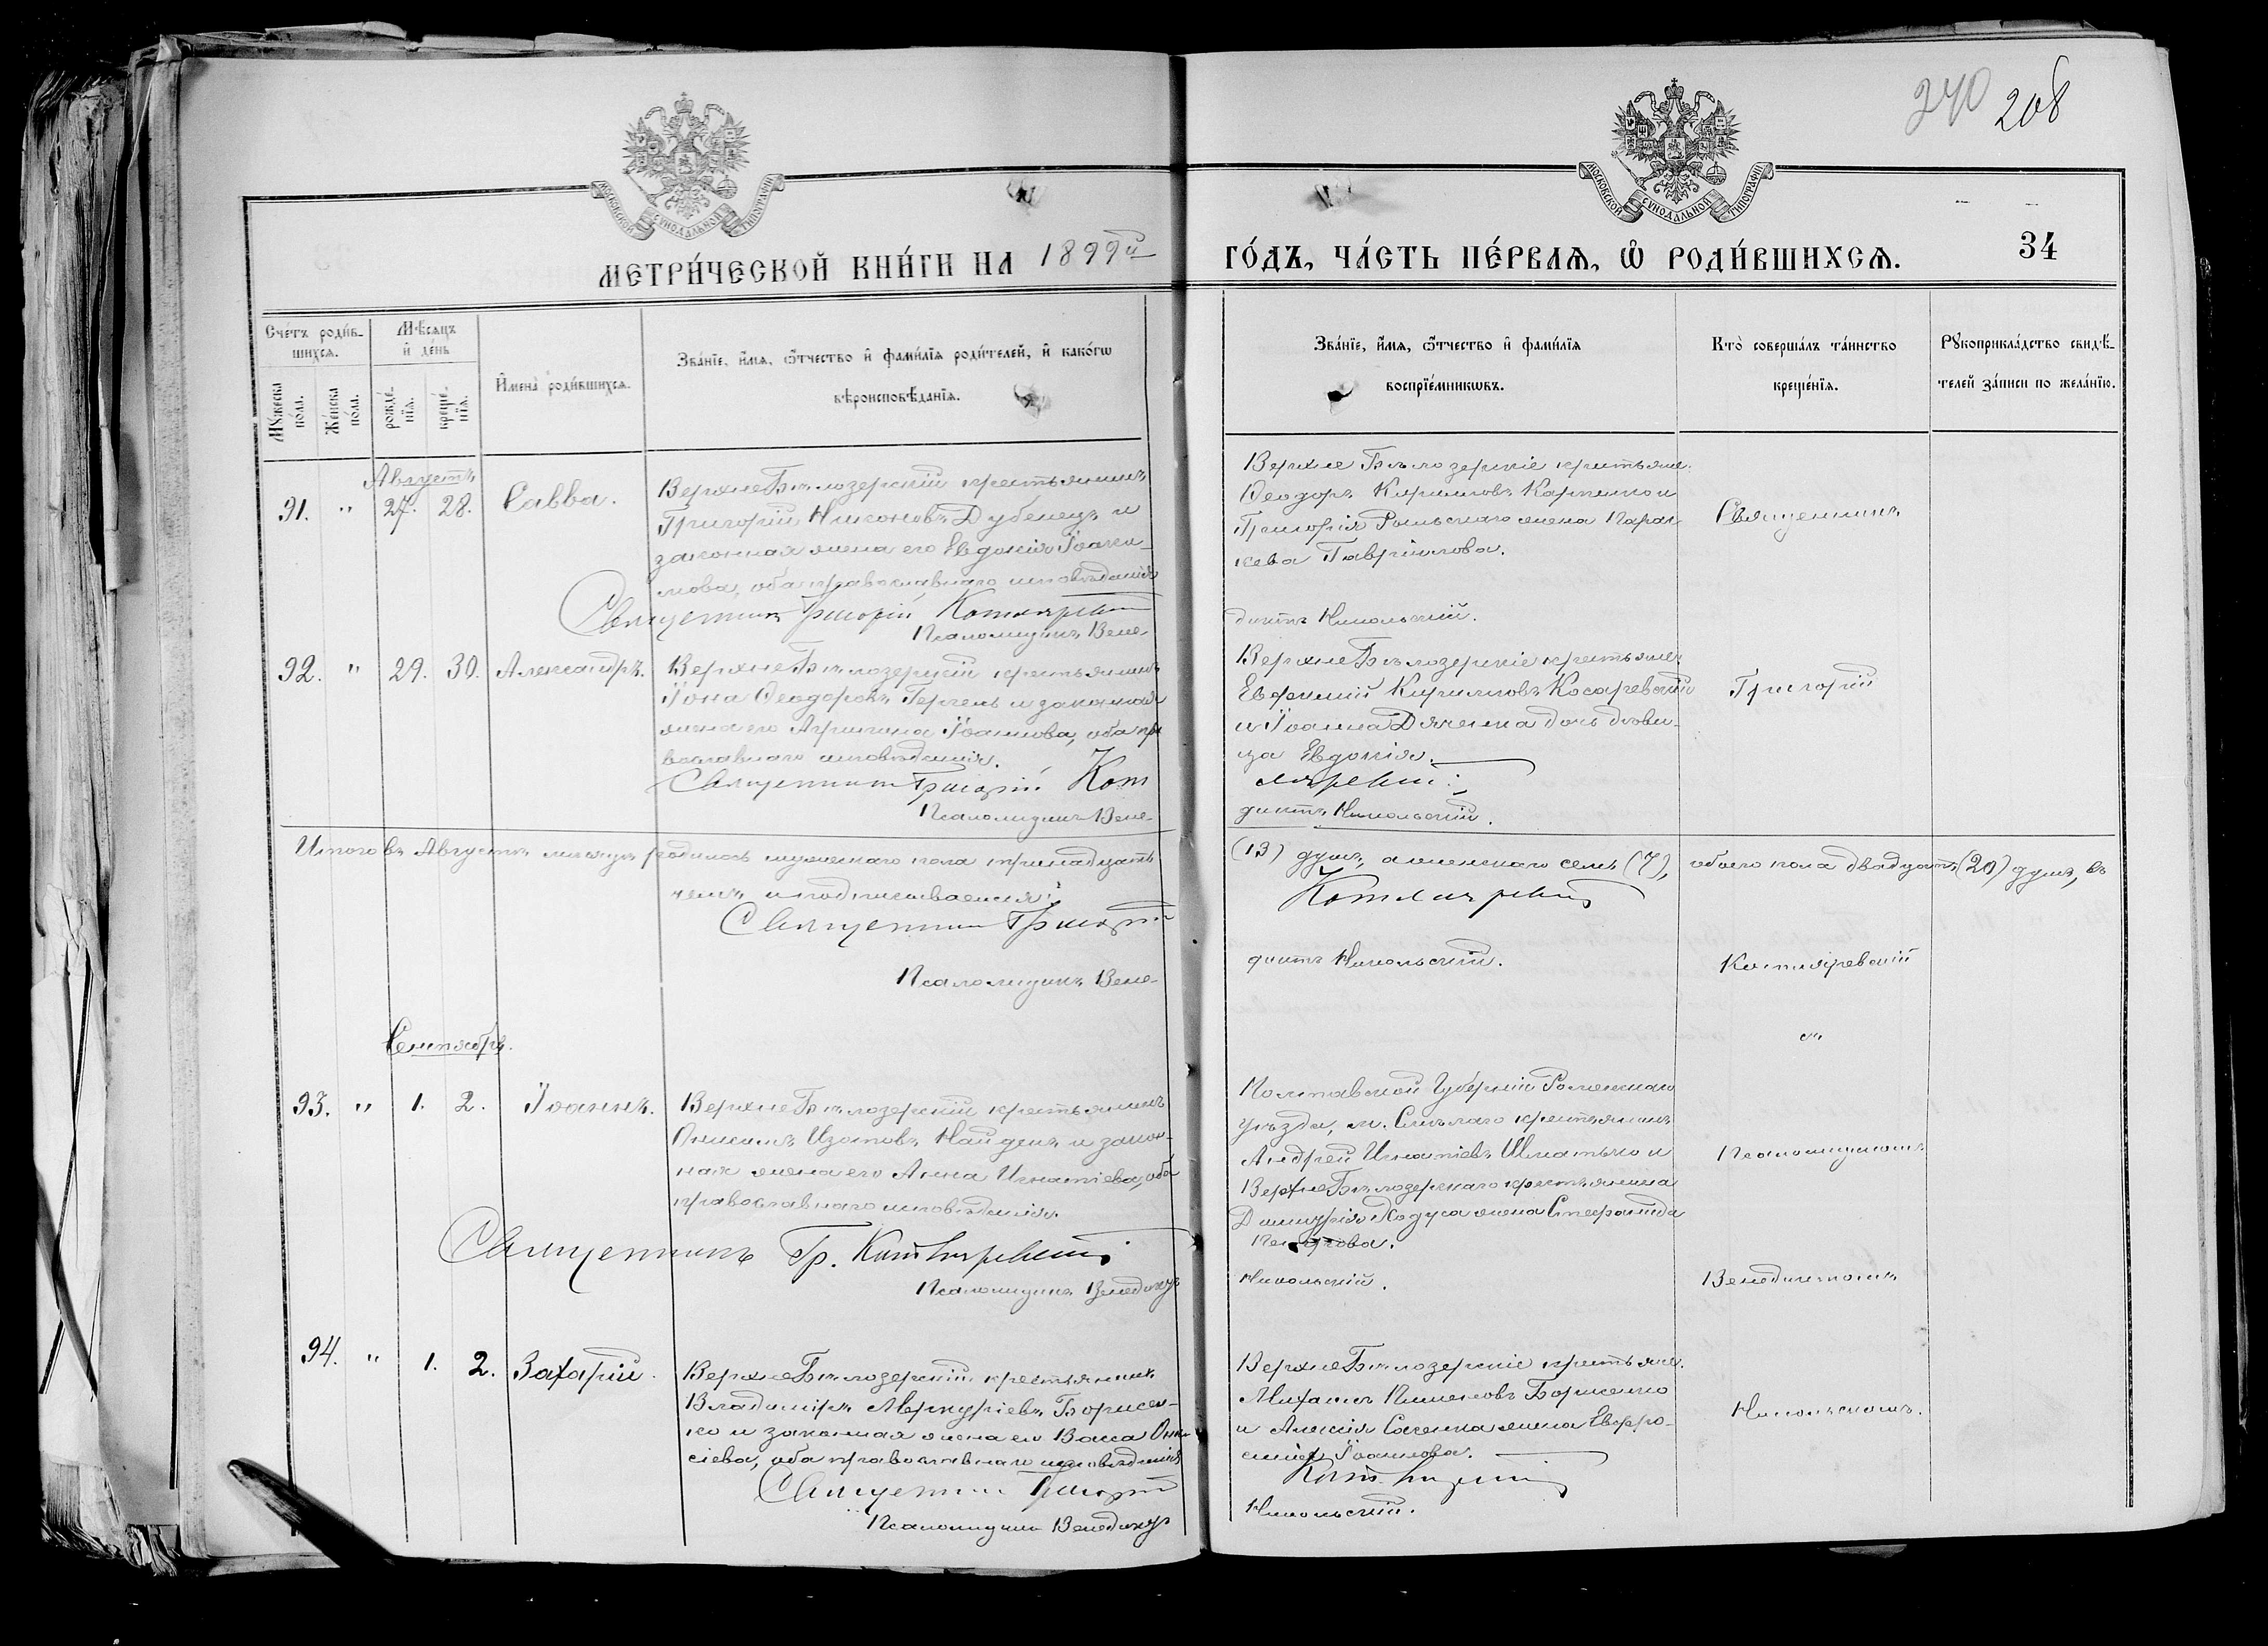 240 208
МОСКОВСКОЙ СѴНОДАЛЬНОЙ ТИПОГРАФІИ
МОСКОВСКОЙ СѴНОДАЛЬНОЙ ТИПОГРАФІИ
МЕТРИ́ЧЕСКОЙ КНИ́ГИ НА 1899й
ГО́ДЪ, ЧА́СТЬ ПЕ́РВАѦ, Ѡ҆ РОДИ́ВШИХСѦ. 34
Сче́тъ роди́в-
шихсѧ.
Мꙋ́жеска по́ла.
Же́нска по́ла.
Мѣ́сѧцъ
и҆ де́нь
рожде́-
нїѧ.
креще́-
нїѧ.
И҆мена̀ роди́вшихсѧ.
Зва́нїе, и҆́мѧ, ѻ҆́тчество и҆ фами́лїѧ роди́телей, и҆ како́гѡ
вѣроисповѣ́данїѧ.
Зва́нїе, и҆́мѧ, ѻ҆́тчество и҆ фами́лїѧ
воспрїе́мникѡвъ.
Кто̀ соверша́лъ та́инство
креще́нїѧ.
Рꙋкоприкла́дство свидѣ́-
телей за́писи по жела́нїю.
Августъ
91. " 27. 28. Савва.
Верхне Бѣлозерскій крестьянинъ
Григорій Никоновъ Дубенецъ и
законная жена его Евдокія Іоаки-
мова, оба православнаго исповѣданія
Священникъ Григорій Котляревскій
Псаломщикъ Вене-
Верхне Бѣлозерскіе крестьяне.
Ѳеодоръ Кирилловъ Карпенко и
Григорія Рыльскаго жена Парас
кева Гавріилова.
диктъ Никольскій.
Священникъ
92. " 29. 30. Александръ.
Верхне Бѣлозерскій крестьянинъ
Іона Ѳеодоровъ Гергель и законная
жена его Агрипина Іоаннова, оба пра
вославнаго исповѣданія.
Священникъ Григорій Кот
Псаломщикъ Вене-
Верхне Бѣлозерскіе крестьяне
Евфимій Кирилловъ Косаревскій
и Іоанна Дяченка дочь дѣви-
ца Евдокія.
ляревскій
диктъ Никольскій.
Григорій
Итого въ Августѣ мѣсяцѣ родилось мужескаго пола тринадцать
(13) душъ, а женскаго семь (7), обоего пола двадцать (20) душъ, въ
чемъ и подписываемся:
Священникъ Григорій
Котляревскій
Псаломщикъ Вене-
диктъ Никольскій.
Котляревскій
Сентябрь.
93. " 1. 2. Іоаннъ.
Верхне Бѣлозерскій крестьянинъ
Онисимъ Изотовъ Найденъ и закон-
ная жена его Анна Игнатіева, оба
православнаго исповѣданія.
Священникъ Гр. Котляревскій
Псаломщикъ Венедиктъ
Полтавской Губерніи Роменскаго
уѣзда, м. Смѣлаго крестьянинъ
Андрей Игнатіевъ Шматько и
Верхне Бѣлозерскаго крестьянина
Димитрія Кодуса жена Стефанида
Петрова.
Никольскій.
и
Псаломщикомъ
Венедиктомъ
94. " 1. 2. Захарій.
Верхне Бѣлозерскій крестьянинъ
Владиміръ Меркуріевъ Борисен-
ко и законная жена его Васса Они
сіева, оба православнаго исповѣданія
Священникъ Григорій
Псаломщикъ Венедиктъ
Верхне Бѣлозерскіе крестьяне.
Михаилъ Пименовъ Борисенко
и Алексія Саченка жена Евфро-
синія Іоаннова.
Котляревскій
Никольскій.
Никольскомъ.